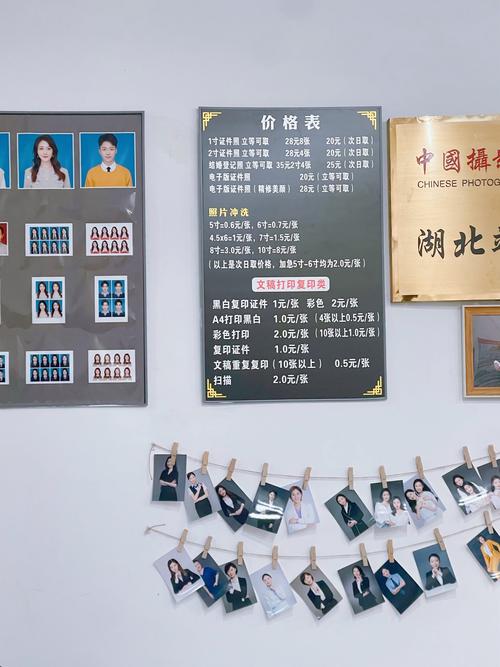 价格表
1寸证件照 立等可取 28元8张 20元（次日取）
2寸证件照 立等可取 28元4张 20元（次日取）
结婚登记照 立等可取 35元2寸4张 25元（次日取）
电子版证件照 20元（立等可取）
电子版证件照（精修美颜） 28元（立等可取）
照片冲洗
5寸=0.6元/张，6寸=0.7元/张
4.5x6=1元/张，7寸=1.5元/张
8寸=3.0元/张，10寸=8元/张
（以上是次日取价格，加急5寸-6寸均为2.0元/张）
文稿打印复印类
黑白复印证件 1元/张 彩色 2元/张
A4打印黑白 1.0元/张 （4张以上0.5元/张）
彩色打印 2.0元/张 （10张以上1.0元/张）
复印证件 1.0元/张
文稿重复复印（10张以上） 0.5元/张
扫描 2.0元/张
中國攝
CHINESE PHOTOG
湖北